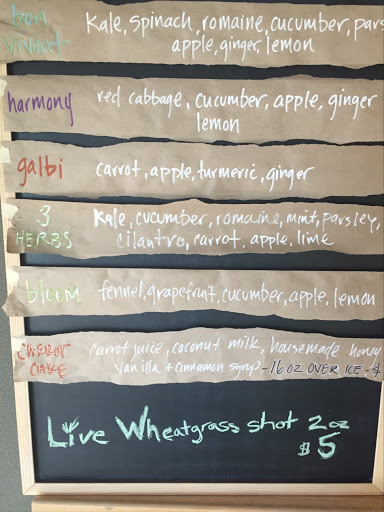 bon Kale, spinach, romaine, cucumber, pars
vivant apple, ginger, lemon
harmony red cabbage, cucumber, apple, ginger
lemon
galbi carrot, apple, turmeric, ginger
3 Kale, cucumber, romaine, mint, parsley,
HERBS cilantro, carrot, apple, lime
bloom fennel, grapefruit, cucumber, apple, lemon
CARROT carrot juice, coconut milk, housemade honey
CAKE vanilla + cinnamon syrup - 16 OZ OVER ICE - $
Live Wheatgrass shot 2oz
$5